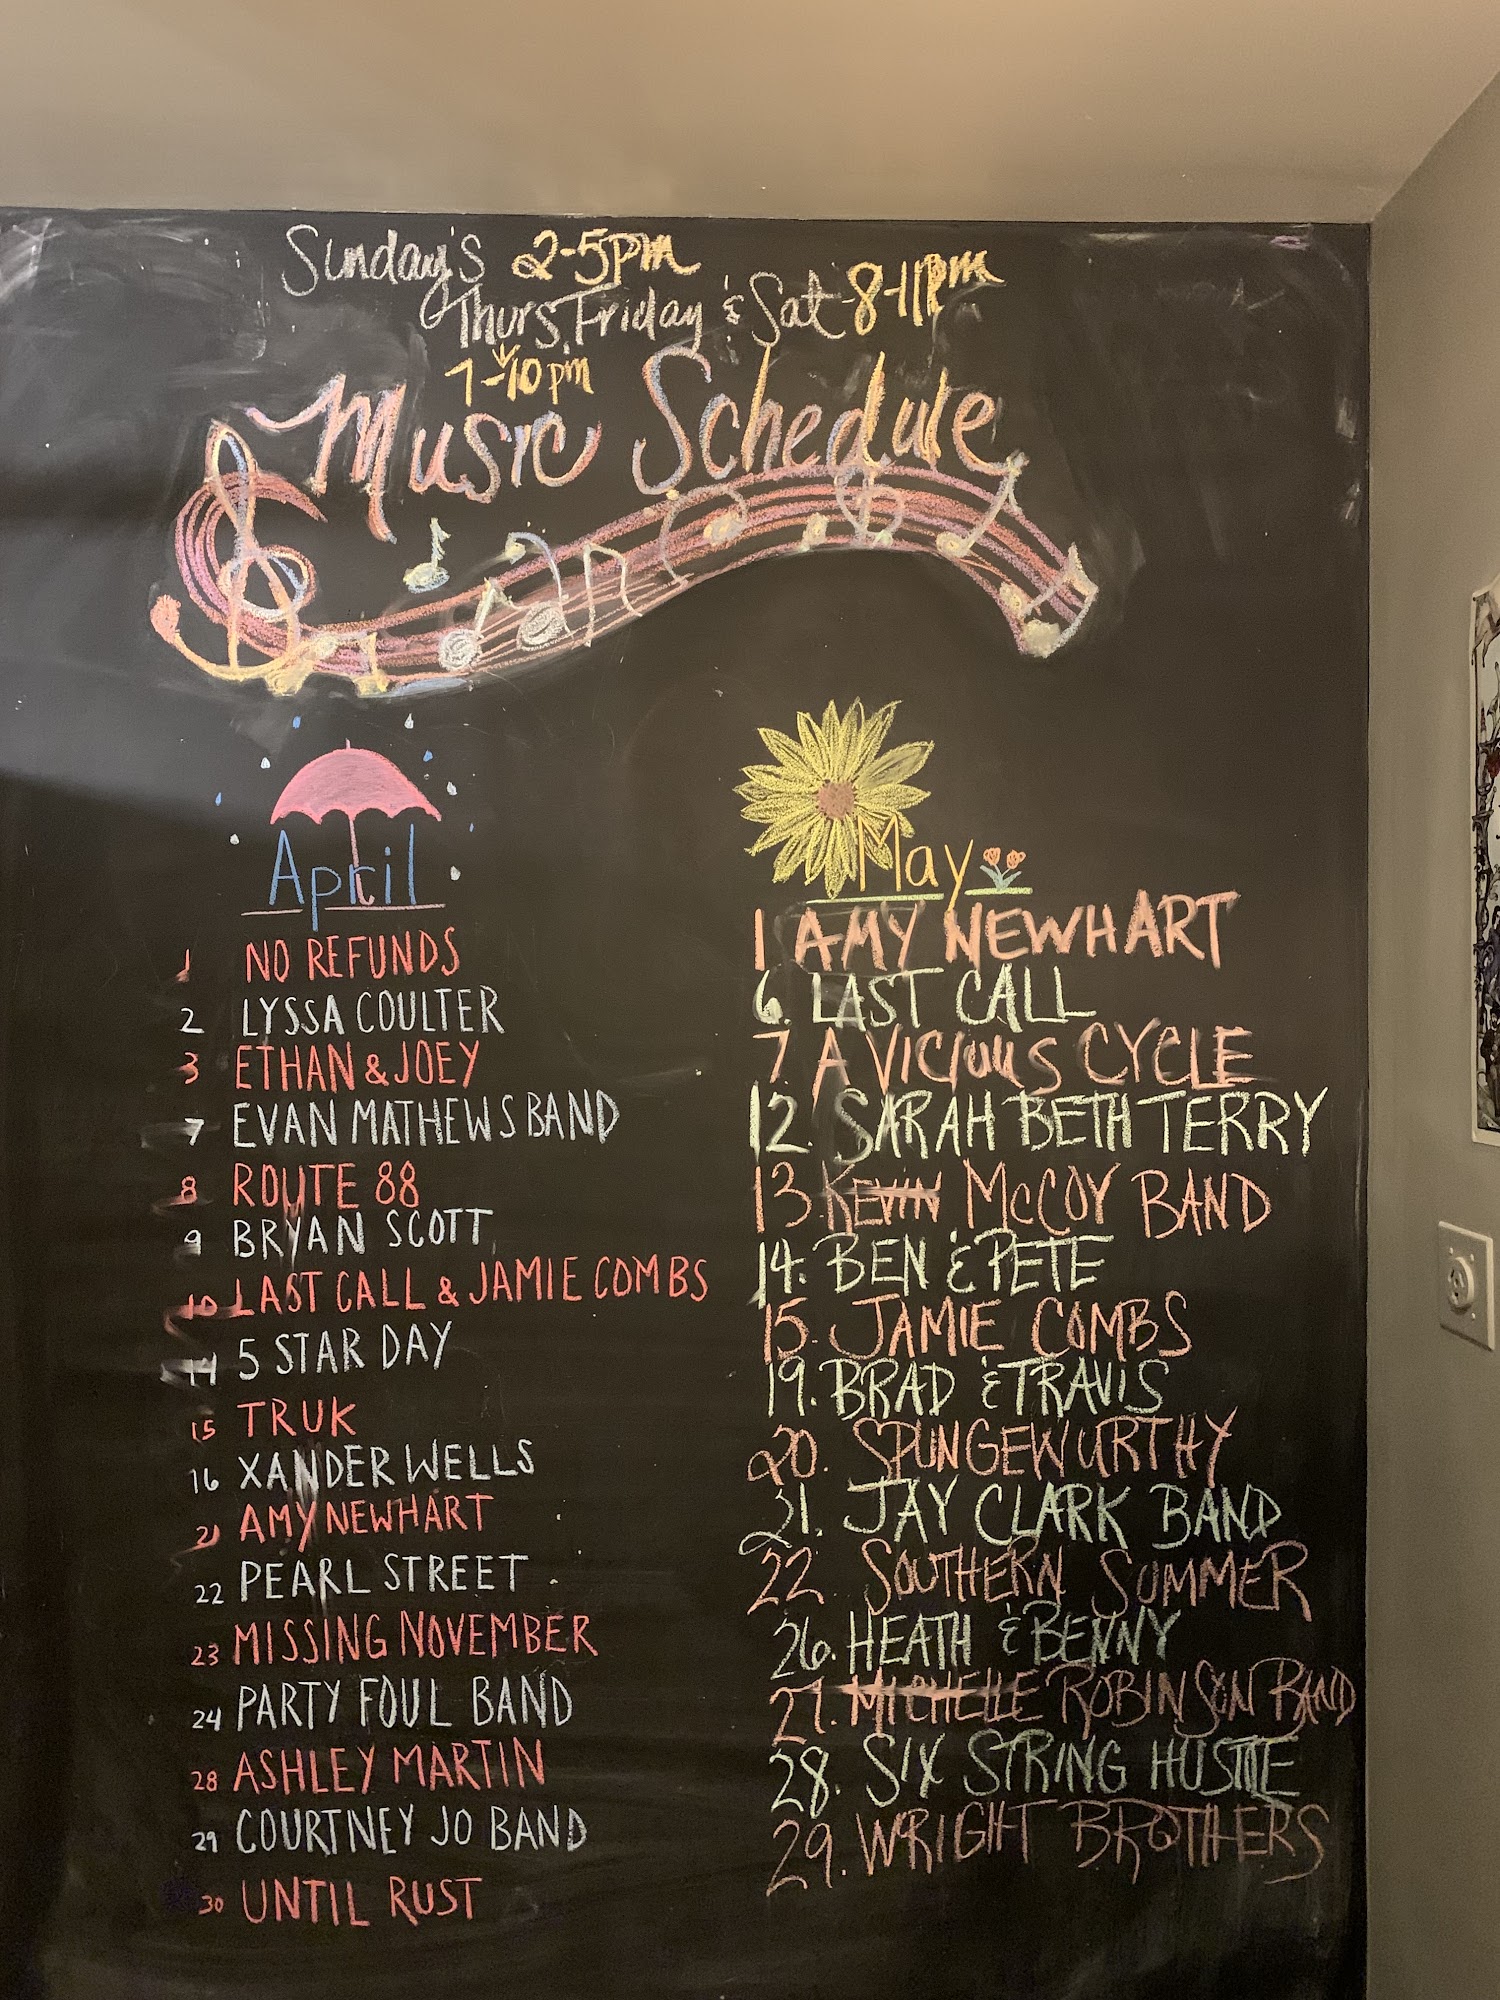 Sunday's 2-5pm
Thurs, Friday & Sat 8-11pm
7-10pm
Music Schedule
April
1 NO REFUNDS
2 LYSSA COULTER
3 ETHAN & JOEY
7 EVAN MATHEWS BAND
8 ROUTE 88
9 BRYAN SCOTT
10 LAST CALL & JAMIE COMBS
14 5 STAR DAY
15 TRUK
16 XANDER WELLS
21 AMY NEWHART
22 PEARL STREET
23 MISSING NOVEMBER
24 PARTY FOUL BAND
28 ASHLEY MARTIN
29 COURTNEY JO BAND
30 UNTIL RUST
May
1 AMY NEWHART
6. LAST CALL
7. A VICIOUS CYCLE
12. SARAH BETH TERRY
13. KEVIN McCOY BAND
14. BEN & PETE
15. JAMIE COMBS
19. BRAD & TRAVIS
20. SPUNGEWURTHY
21. JAY CLARK BAND
22. SOUTHERN SUMMER
26. HEATH & BENNY
27. MICHELLE ROBINSON BAND
28. SIX STRING HUSTLE
29. WRIGHT BROTHERS